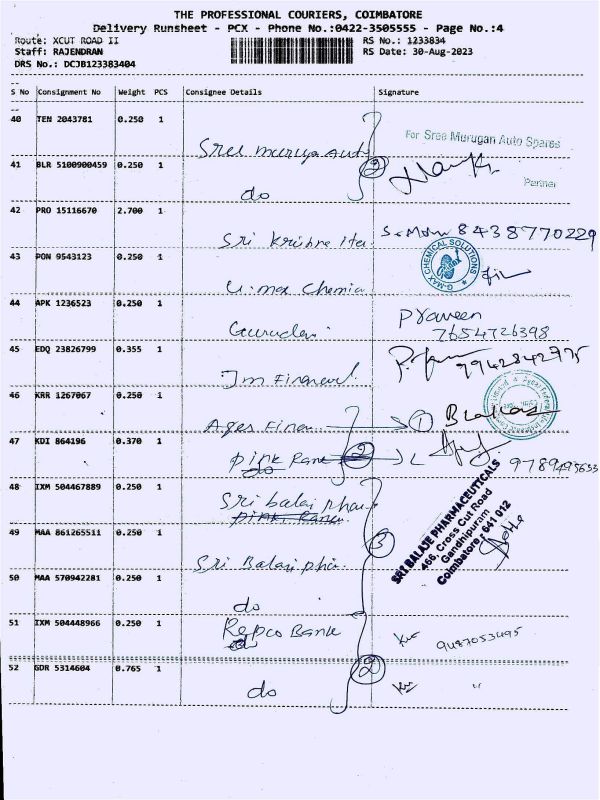 THE PROFESSIONAL COURIERS, COIMBATORE
Delivery Runsheet - PCX - Phone No.:0422-3505555 - Page No.:4
Route: XCUT ROAD II
RS No.: 1233834
Staff: RAJENDRAN
RS Date: 30-Aug-2023
DRS No.: DCJB123383404
S No Consignment No Weight PCS Consignee Details Signature
40 TEN 2043781 0.250 1
For Sree Murugan Auto Spares
Sree muruga auto
2
41 BLR 5100900459 0.250 1
Partner
do
42 PRO 15116670 2.700 1
Sri Krishna
8438770229
43 PON 9543123 0.250 1
G-MAX CHEMICAL SOLUTIONS
G-max Chemica
44 APK 1236523 0.250 1
Praveen
7654726398
45 EDQ 23826799 0.355 1
9942842775
Jm Financial
46 KRR 1267067 0.250 1
Ages Finan
1
47 KDI 864196 0.370 1
Bank
2
9789495633
48 IXM 504467889 0.250 1
Sri balaji phar
SRI BALAJE PHARMACEUTICALS
466, Cross Cut Road
Gandhipuram
Coimbatore - 641 012
49 MAA 861265511 0.250 1
3
Sri Balaji pha
50 MAA 570942281 0.250 1
do
51 IXM 504448966 0.250 1
Repco Bank
9487053495
52 GDR 5314604 0.765 1
2
do
"